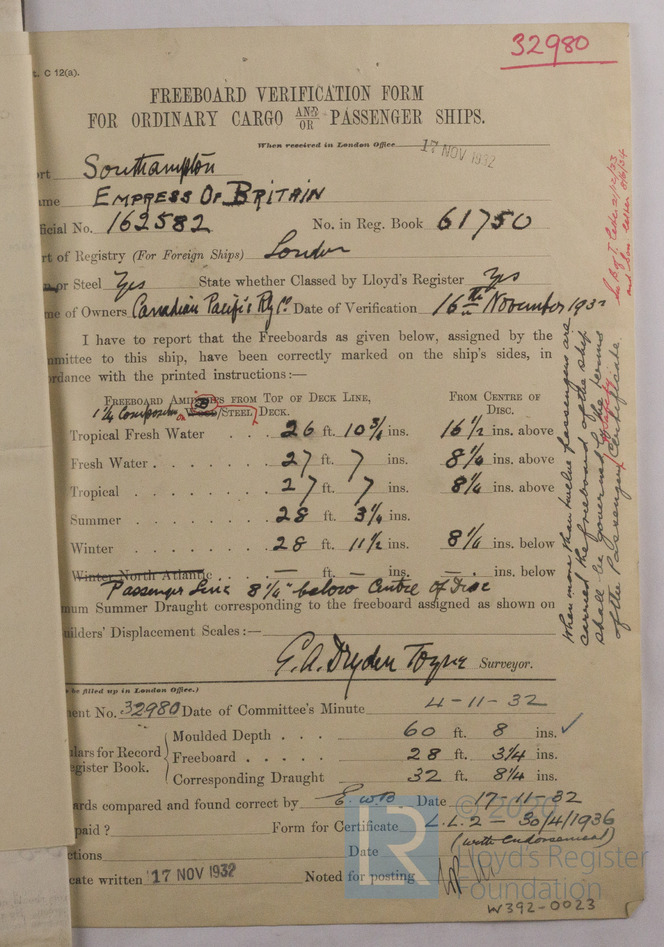 32980
t. C 12(a).
FREEBOARD VERIFICATION FORM
FOR ORDINARY CARGO AND/OR PASSENGER SHIPS.
When received in London Office 17 NOV 1932
ort Southampton
ame EMPRESS OF BRITAIN
ficial No. 162582 No. in Reg. Book 61750
rt of Registry (For Foreign Ships) London
or Steel Yes State whether Classed by Lloyd's Register Yes
me of Owners Canadian Pacific Rly Co Date of Verification 16th November 1932
I have to report that the Freeboards as given below, assigned by the
mmittee to this ship, have been correctly marked on the ship's sides, in
ordance with the printed instructions:—
FREEBOARD AMIDSHIPS FROM TOP OF DECK LINE, FROM CENTRE OF
1 1/4 Composition WOOD/STEEL DECK. DISC.
Tropical Fresh Water . . . 26 ft. 10 3/4 ins. 16 1/2 ins. above
Fresh Water . . . . . 27 ft. 7 ins. 8 1/4 ins. above
Tropical . . . . . . 27 ft. 7 ins. 8 1/4 ins. above
Summer . . . . . . 28 ft. 3 1/4 ins.
Winter . . . . . . 28 ft. 11 1/2 ins. 8 1/4 ins. below
Winter North Atlantic . . . — ft. — ins. — ins. below
Passenger Line 8 1/4" below Centre of Disc
mum Summer Draught corresponding to the freeboard assigned as shown on
uilders' Displacement Scales :—
E.A. Dryden Toyne Surveyor.
When more than twelve passengers are
carried the freeboard of the ship
shall be governed by the terms
of the Passenger Certificate
be filled up in London Office.)
ent No. 32980 Date of Committee's Minute 4-11-32
Moulded Depth . . . 60 ft. 8 ins. ✓
ulars for Record Freeboard . . . . . 28 ft. 3 1/4 ins.
egister Book. Corresponding Draught 32 ft. 8 1/4 ins.
ards compared and found correct by Date 17-11-32
paid ? Form for Certificate L.L.2 — 30/4/1936
(with endorsement)
ctions Date
cate written 17 NOV 1932 Noted for posting
© 2020
LR
Lloyd's Register
Foundation
W392-0023